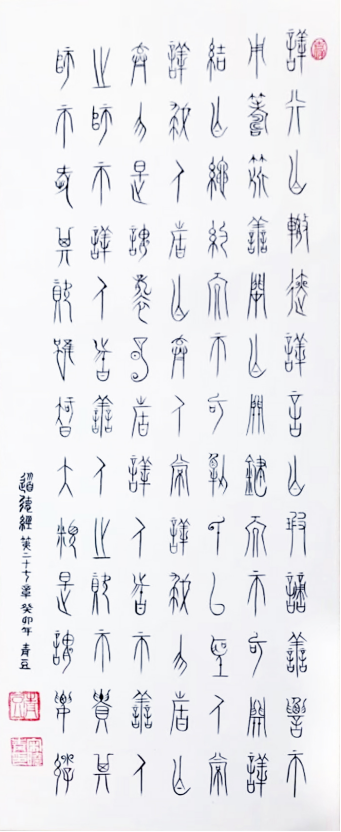 善行無轍迹善言無瑕讁善數不
用籌策善閉無關鍵而不可開善
結無繩約而不可解是以聖人常
善救人故無棄人常善救物故無
棄物是謂襲明故善人者不善人
之師不善人者善人之資不貴其
師不愛其資雖智大迷是謂要妙
道德經 第二十七章 癸卯年 青豆